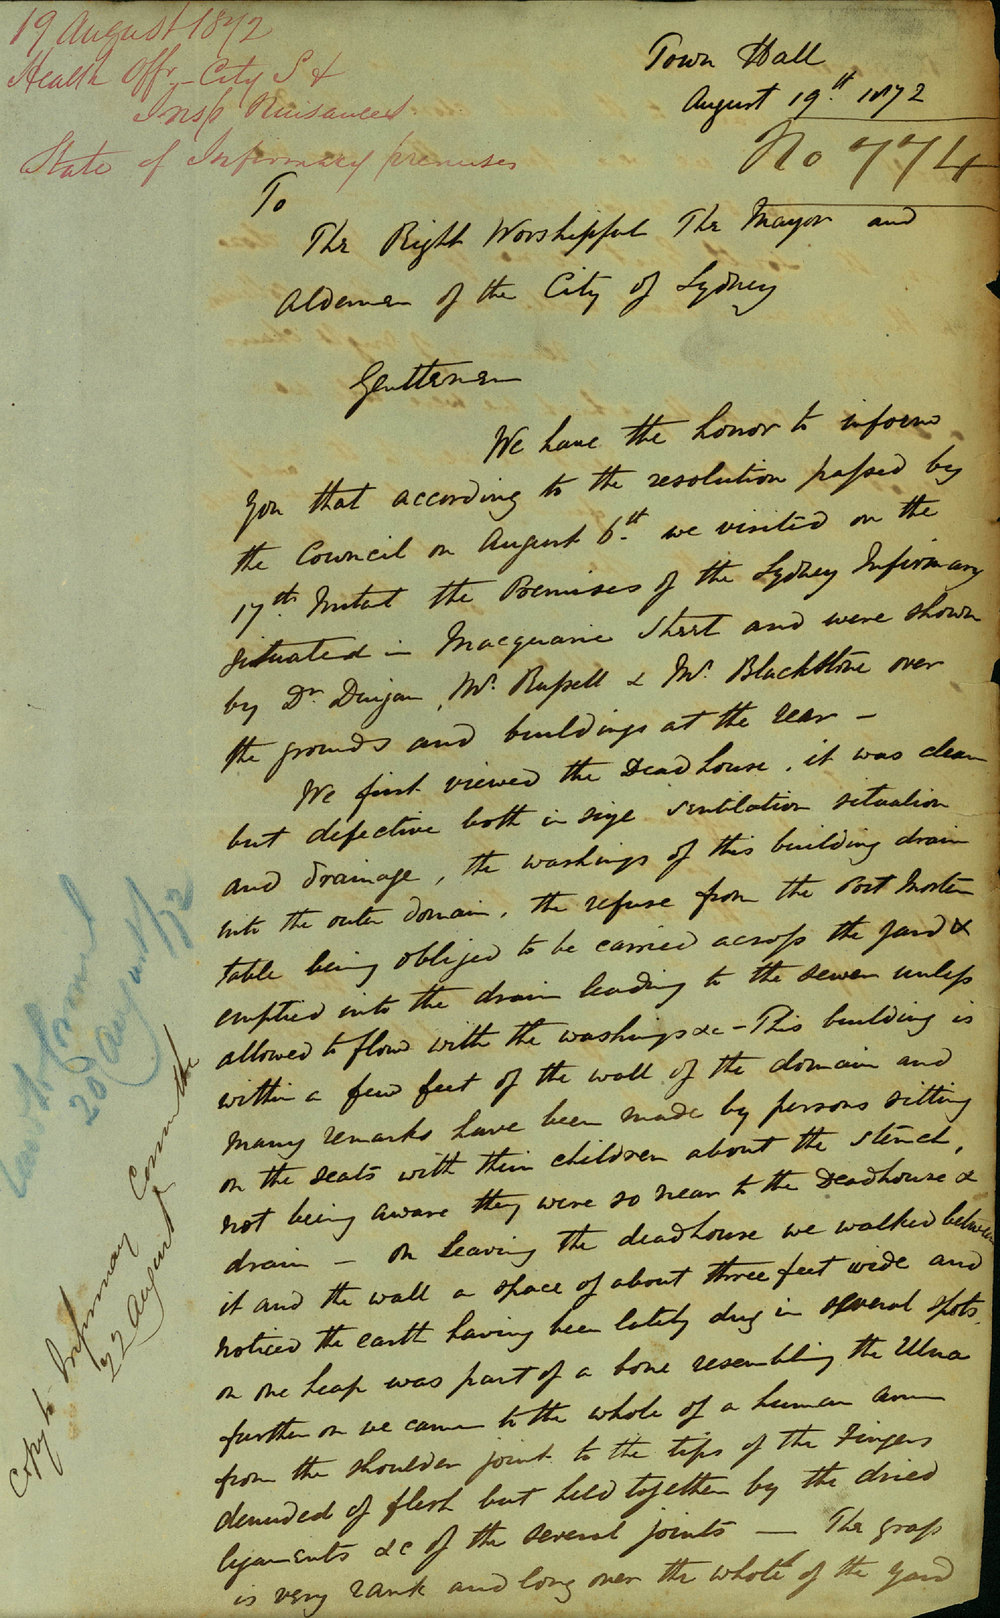 19 August 1872
Health Offr - City S &
Insp Nuisances
State of Infirmary premises
Town Hall
August 19th. 1872
No 774
To
The Right Worshipful The Mayor and
Aldermen of the City of Sydney
Gentlemen
We have the honor to inform
you that according to the resolution passed by
the Council on August 6th. we visited on the
17th Instant the Premises of the Sydney Infirmary
situated in Macquarie Street and were shown
by Dr. Dwyan, Mr. Russell & Mr. Blackstone over
the grounds and buildings at the rear -
We first viewed the Deadhouse, it was clean
but defective both in size ventilation situation
and drainage, the washings of this building drain
into the outer domain, the refuse from the Post Mortem
table being obliged to be carried across the yard &
emptied into the drain leading to the sewer unless
allowed to flow with the washings &c - This building is
within a few feet of the wall of the domain and
many remarks have been made by persons sitting
on the seats with their children about the stench,
not being aware they were so near to the Deadhouse &
drain - on leaving the deadhouse we walked between
it and the wall a space of about three feet wide and
noticed the earth having been lately dug in several spots,
on one heap was part of a bone resembling the Ulna
further on we came to the whole of a human arm
from the shoulder joint to the tips of the Fingers
denuded of flesh but held together by the dried
ligaments &c of the several joints - The grass
is very rank and long over the whole of the yard
Council
20 August/72
Copy to Infirmary Committee
22 August